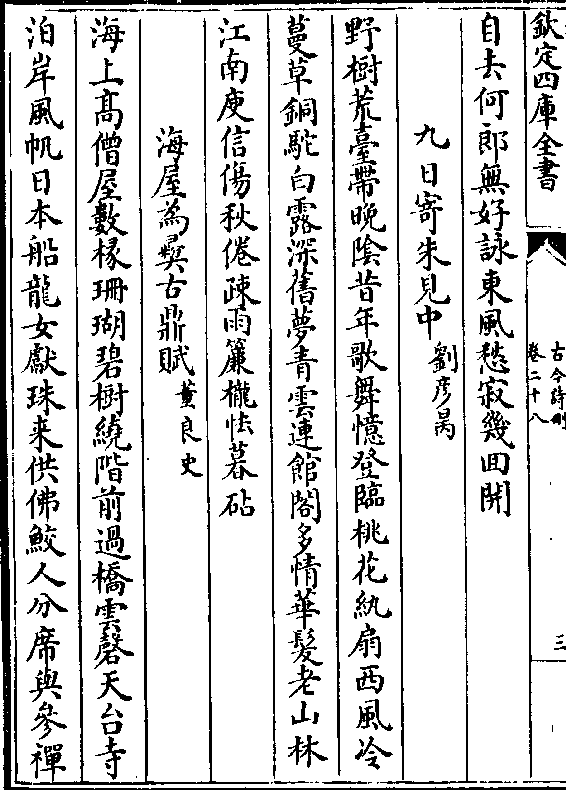 欽定四庫全書
古今詩刪
卷二十八
三
自去何郎無好詠東風愁寂幾回開
九日寄朱見中
劉彦昺
野樹荒臺帶晚陰昔年歌舞憶登臨桃花紈扇西風冷
蔓草銅駝白露深舊夢青雲連館閣多情華髮老山林
江南庾信傷秋倦疎雨簾櫳怯暮砧
海屋為㬅古鼎賦
董良史
海上髙僧屋數椽珊瑚碧樹繞階前過橋雲磬天台寺
泊岸風帆日本船龍女獻珠来供佛鮫人分席與參禪